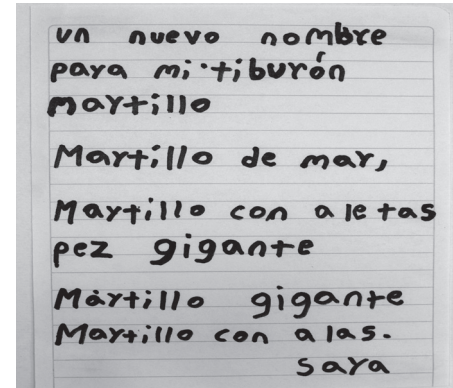 un nuevo nombre
para mi tiburón
martillo
Martillo de mar,
Martillo con aletas
pez gigante
Martillo gigante
Martillo con alas.
Sara